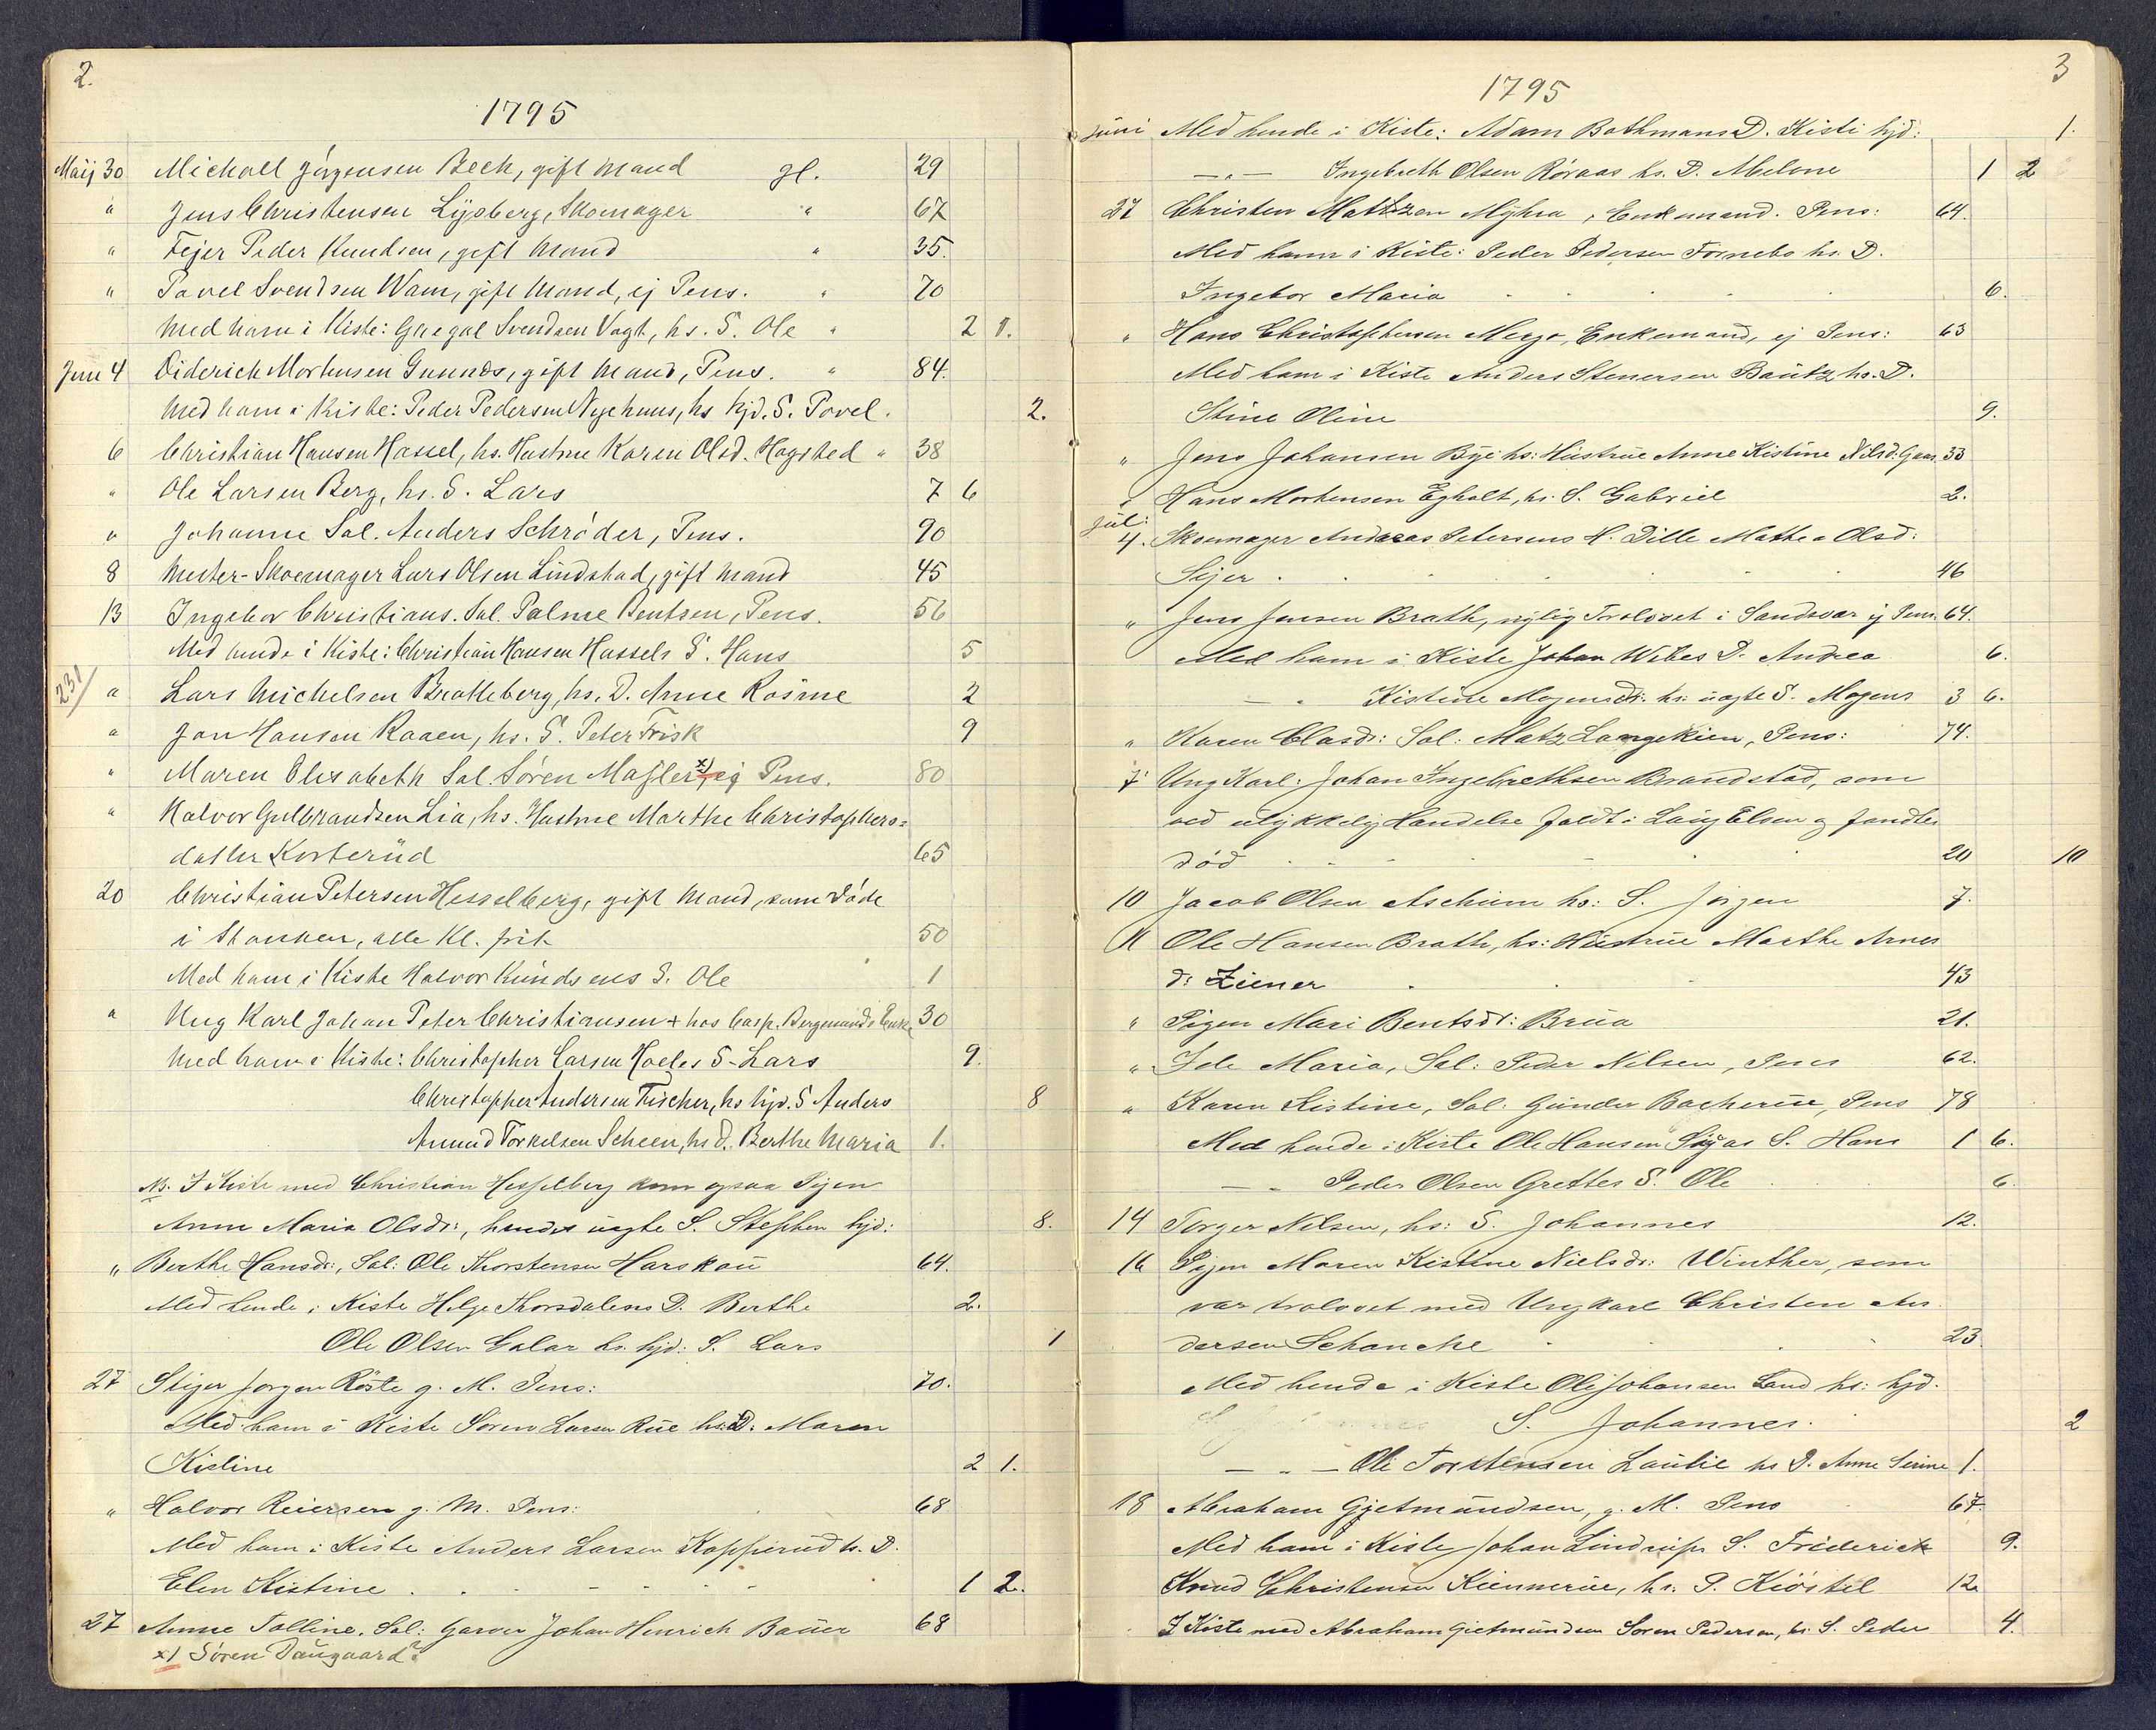 2.
1795
Maij 30 Michael Jörgensen Beck, gift Mand gl. 29
" Jens Christensen Lysberg, Skomager " 67
" Fejer Peder Knudsen, gift Mand " 35.
" Povel Svendsen Wam, gift Mand, ej Pens. " 70
Med ham i Kiste: Svendsen Vogt, hs. S. Ole " 2 1.
Juni 4 Diderich Mortensen, gift Mand, Pens. " 84.
Med ham i Kiste: Peder Pedersen Nyehuus, hs hjd. S. Povel. 2.
6 Christian Hansen Hassel, hs. Hustrue Karen Olsd. Hagsted " 38
" Ole Larsen Berg, hs. S. Lars 7 6
" Johanne Sal. Anders Schröder, Pens. 90
8 Mester-Skoemager Lars Olsen Lindstad, gift Mand 45
13 Ingebor Christians. Sal. Palme Bentsen, Pens. 56
Med hende i Kiste: Christian Hansen Hassels S. Hans 5
231/ " Lars Michelsen Bratteberg, hs. D. Anne Rosine 2
" Jon Hansen Raaen, hs. S. Peter Frisk 9
" Maren Elisabeth Sal. Sören Masler x) ej Pens. 80
" Halvor Gulbrandsen Lia, hs. Hustrue Marthe Christophers=
datter Korterüd 65
20 Christian Petersen Hesselberg, gift Mand, som döde
i Skanken, alle Kl. frit 50
Med ham i Kiste Halvor Kündsens S. Ole 1
" Ung Karl Johan Peter Christiansen + hos Casp. Bergmands Enke 30
Med ham i Kiste: Christopher Larsen Hoeles S. Lars 9.
Christopher Andersen Fischer, hs hjd. S Anders 8
Amund Torkelsen Scheen, hs D. Berthe Maria 1.
NB. I Kiste med Christian Hesselberg kom ogsaa Pigen
Anne Maria Olsdr:, hendes uægte S. Stephen hjd: 8.
" Berthe Hansdr:, Sal: Ole Thorstensen Harskou 64.
Med hende i Kiste Helge Thorsdalens D. Berthe 2.
Ole Olsen Galar hs. hjd: S. Lars 1
27 Stiger Jorgen Röste g. M. Pens: 70.
Med ham i Kiste Sören Larsen Rüe hs: D: Maren
Kistine 2 1.
" Halvor Reiersen g. M. Pens: 68
Med ham i Kiste Anders Larsen Kopperud hs. D.
Elen Kistine . . . 1 2.
27 Anne Talline, Sal: Garver Johan Henrich Bauer 68
x) Sören Daugaard?
3
1795
Juni Med hende i Kiste: Adam Bothmans D. Kisti hjd: 1.
— " — Ingebreth Olsen Röraas hs. D. Malene 1 2
27 Christen Mattzen Myhra, Enkemand. Pens: 64.
Med ham i Kiste: Peder Pedersen Fornebo hs. D.
Ingebor Maria . . . 6.
" Hans Christophersen, Enkemand, ej Pens: 63
Med ham i Kiste Anders Stenersen Bautz hs. D.
Stine Oline 9.
" Jens Johansen Bye hs: Hustrue Anne Kistine Nilsd: Gaas 33
" Hans Mortensen Egholt, hs. S. Gabriel 2.
Jul: 4. Skoemager Andreas Petersens H. Dille Mathea Olsd:
Sejer . . . 46
" Jens Jensen Brath, nylig Trolovet i Sandsvær ej Pens 64.
Med ham i Kiste Johan Wibes D. Andrea 6.
— " Kistine Mogensdr: hs: uægte S. Mogens 3 6.
" Karen Clasdr: Sal: Matz Langekien, Pens: 74.
7 Ung Karl: Johan Ingebrethsen Brandstad, som
ved ulykkelig Handelse faldt i Laug Elven og fandtes
död . . . 20 10
10 Jacob Olsen Aschim hs: S. Jörgen 7.
11 Ole Hansen Brath, hs: Hustrue Marthe Arnes
d: Ziener . . . 43
" Pigen Mari Bentsdr: Brüa 21.
" Ide Maria, Sal: Peder Nilsen, Pens 62.
" Karen Kistine, Sal: Gunder Bacherüe, Pens 78
Med hende i Kiste Ole Hansen S. Hans 1 6.
— " Peder Olsen Grettes S. Ole 6
14 Torger Nilsen, hs: S. Johannes 12.
16 Pigen Maren Kistine Nielsdr: Winther, som
var trolovet med Ung Karl Christen An
dersen Schancke . . . 23
Med hende i Kiste Ole Johansen Land hs: hjd.
S. Johannes. 2
— " — Ole Torstensen Laulie hs D. Anne Sirine 1.
18 Abraham Gjetmündsen, g. M. Pens 67.
Med ham i Kiste Johan Lindrups S. Friderich 9.
Knud Christensen Kiennerüe, hs. S. Kiöstil 12
I Kiste med Abraham Gietmündsen Soren Pedersen, hs. S. Peder 4.